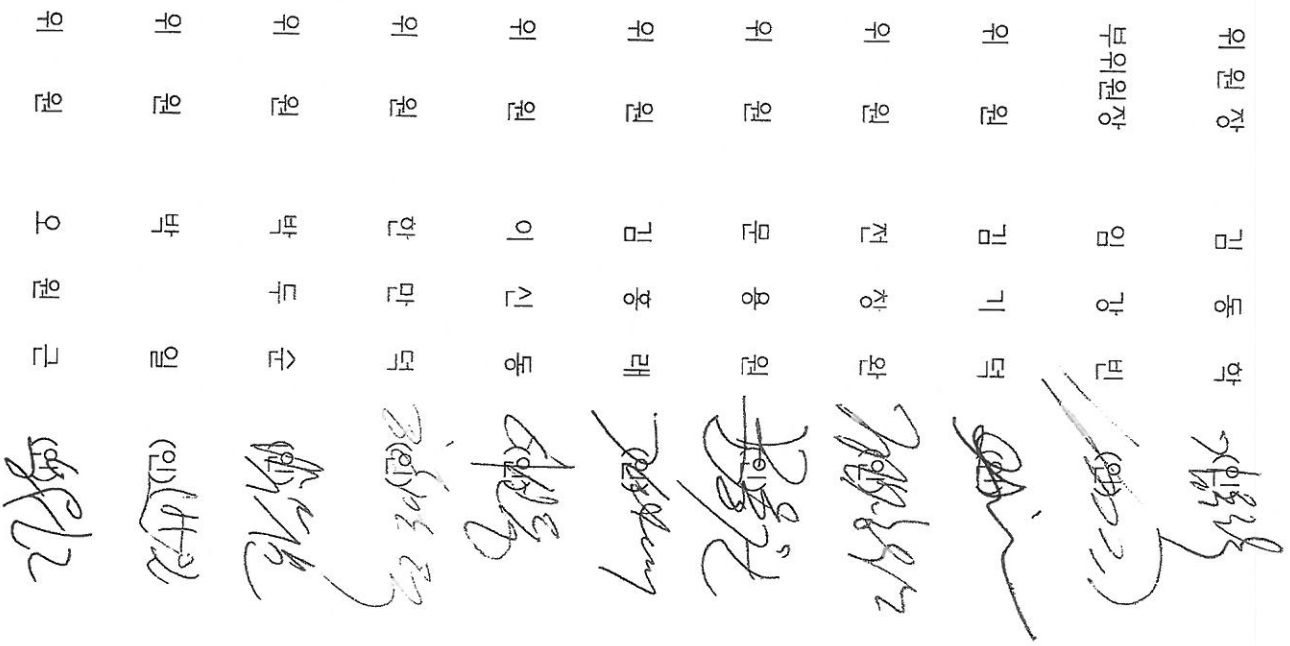 위 원 장 김 동 학 (인)
부위원장 임 강 빈 (인)
위 원 김 기 덕 (인)
위 원 전 창 완 (인)
위 원 문 용 원 (인)
위 원 김 홍 래 (인)
위 원 이 신 동 (인)
위 원 한 만 덕 (인)
위 원 박 두 순 (인)
위 원 박 일 (인)
위 원 오 원 근 (인)